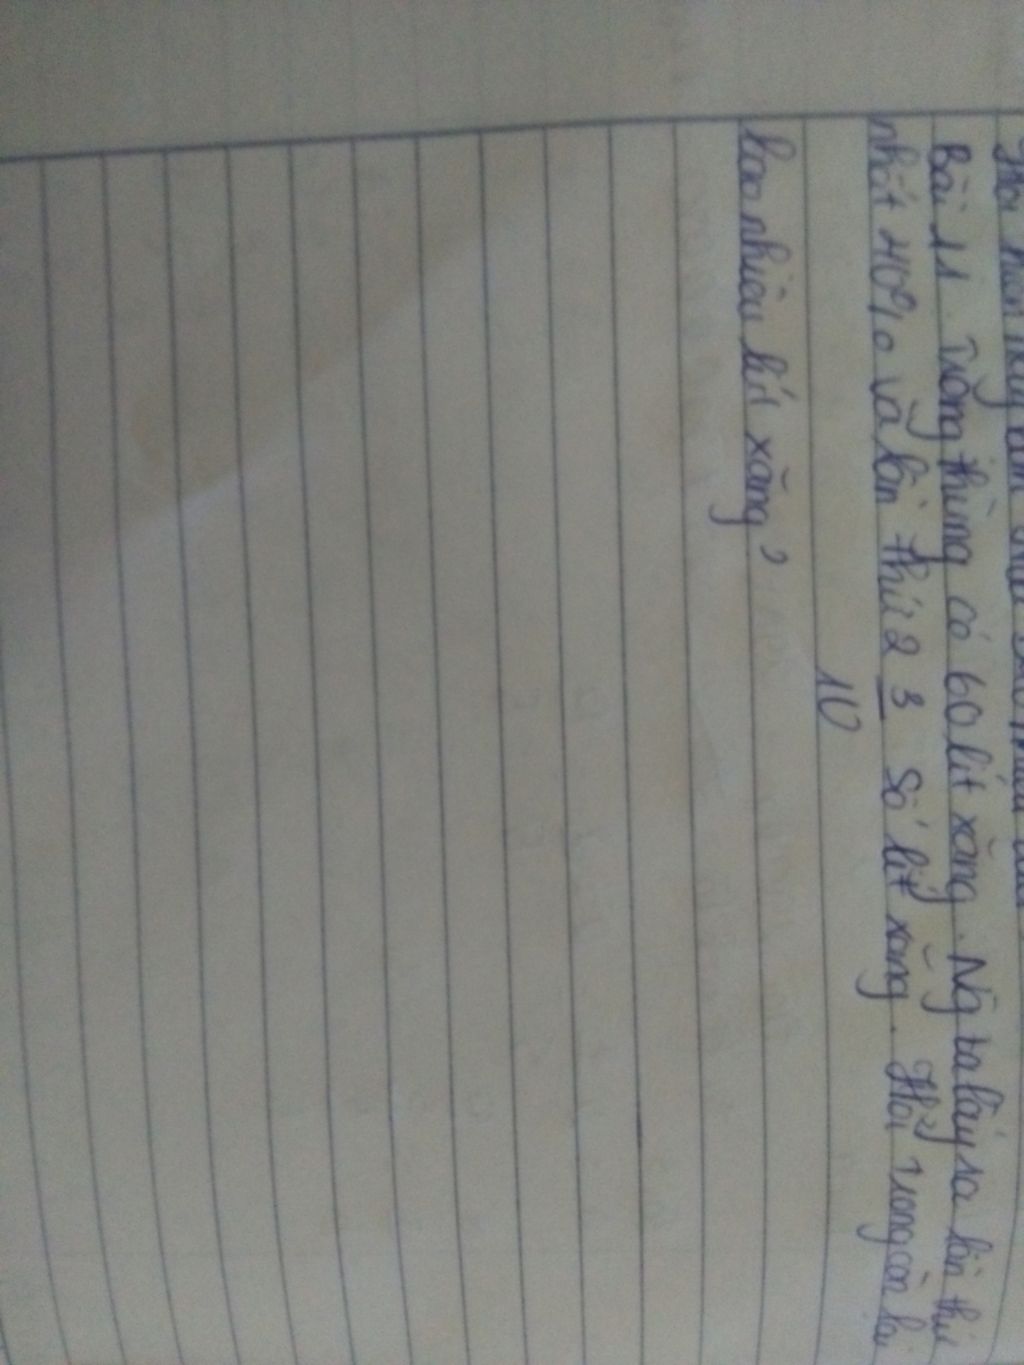 Bài 11. Trong thùng có 60 lít xăng. Ng ta lấy ra lần thứ
nhất 40% và lần thứ 2 3 số lít xăng. Hỏi trong còn lại
10
bao nhiêu lít xăng?